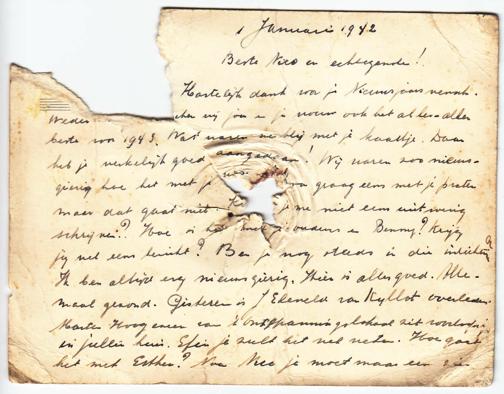 1 Januari 1942
Beste Nico en echtgenoote!
Hartelijk dank voor je Nieuwjaars
wij jou en je vrouw ook het aller-aller
beste voor 1943. Wat waren we blij met je kaartje. Daar
heb je werkelijk goed aangedaan! Wij waren zoo nieuws-
gierig hoe het met je graag eens met je praten
maar dat gaat niet je me niet eens uitvoerig
schrijven? Hoe is het ouders en Benny? Krijg
jij wel eens bericht? Ben je nog steeds in die
Ik ben altijd erg nieuwsgierig. Hier is alles goed. Alle-
maal gezond. Gisteren is overleden.
van 't zit
in hun huis. Efin je zult het wel weten. Hoe gaat
het met Esther? Nico je moet maar een